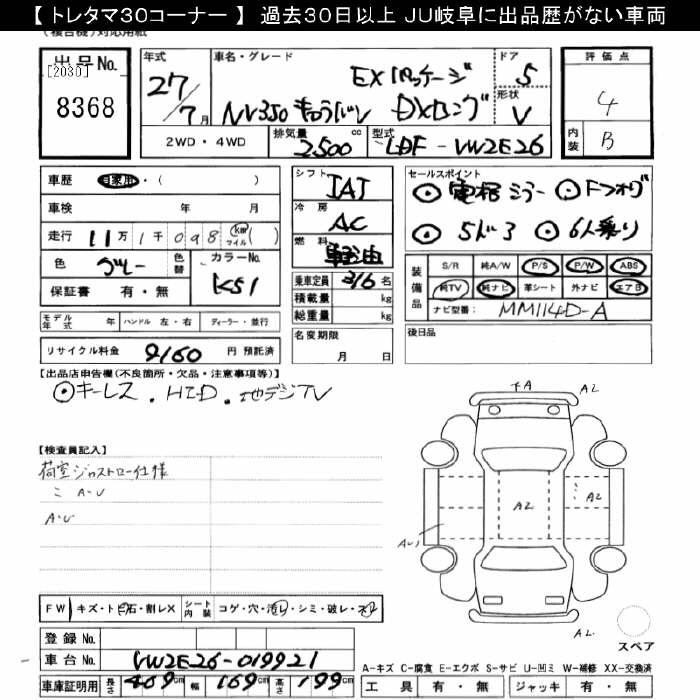 【 トレタマ30コーナー 】 過去30日以上 JU岐阜に出品歴がない車両
出品No.
[2030]
8368
年式
27/7月
車名・グレード
EXパッケージ
NV350 キャラバン DXロング
ドア
5
形状
V
評価点
4
内装
B
2WD・4WD
排気量
2500cc
型式
LDF-VW2E26
車歴 自家用・( )
車検 年 月
走行 11万1千098 km マイル ( )
色 グレー
色替
カラーNo.
K51
保証書 有・無
シフト
IAT
冷房
AC
燃料
軽油
乗車定員 3/6名
積載量 kg
総重量 kg
セールスポイント
電格ミラー Fフォグ
5ドア 6人乗り
装備品
S/R 純A/W P/S P/W ABS
純TV 純ナビ 革シート 外ナビ エアB
ナビ型番: MM114D-A
モデル年式 年 ハンドル 左・右 ディーラー・並行
リサイクル料金 9160 円 預託済
名変期限
月 日
後日品
【出品店申告欄(不良箇所・欠品・注意事項等)】
キーレス . HID . 地デジTV
【検査員記入】
荷室ジョストロー仕様
〃 A・U
A・U
FA
A2
A2
A2
AU1
A2
FW キズ・ト 石・割レX
シート内装 コゲ・穴・汚レ・シミ・破レ・スレ
登録No.
車台No. VW2E26-019921
車庫証明用 長さ 469cm 幅 169cm 高さ 199cm
スペア
A-キズ C-腐食 E-エクボ S-サビ U-凹ミ W-補修 XX-交換済
工具 有・無 ジャッキ 有・無